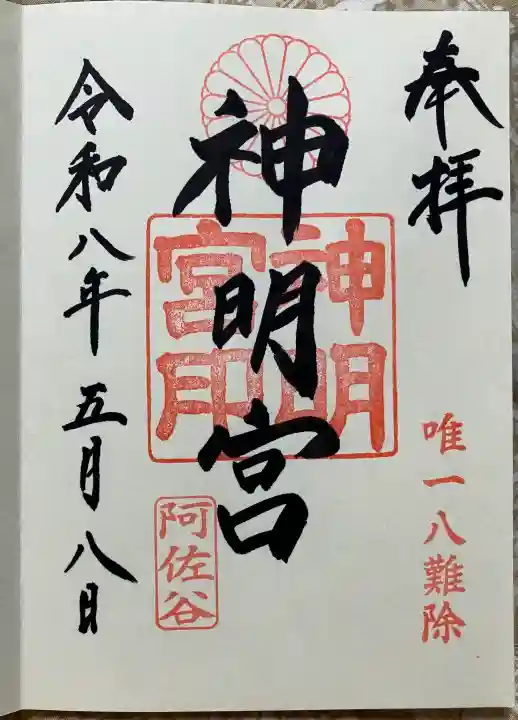 奉拝
唯一八難除
神明宮
神明宮印
阿佐谷
令和八年 五月八日